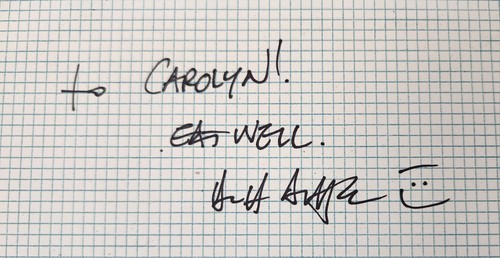 to CAROLYN!
EAT WELL.